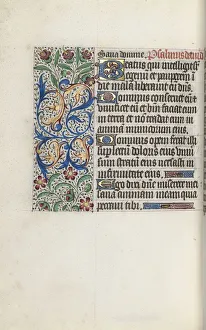 Sana domine. Psalmus david
Beatus qui intelligit sup
egenu et pauperem in
die mala liberabit eu dns.
Dominus conseruet eu et
uiuificet eu et beatu faciat eum
in terra et no tradat eum in
animā inimicorum eius.
Dominus opem ferat illi
sup lectū doloris eius uniū
sum stratū eius uersasti in
infirmitate eius.
Ego dixi dne miserere mei
sana animam meam quia
peccaui tibi.